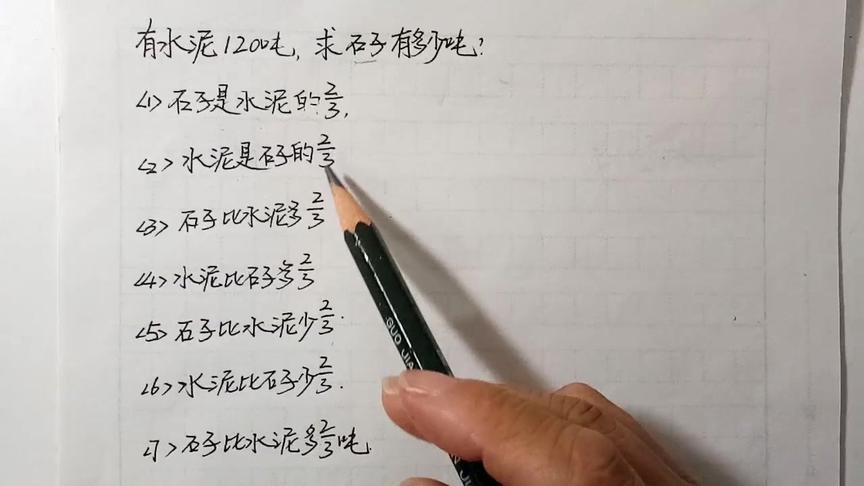 有水泥1200吨，求石子有多少吨？
<1>石子是水泥的2/3，
<2>水泥是石子的2/3
<3>石子比水泥多2/3
<4>水泥比石子多2/3
<5>石子比水泥少2/3.
<6>水泥比石子少2/3.
<7>石子比水泥多2/3吨.
GUO JIA